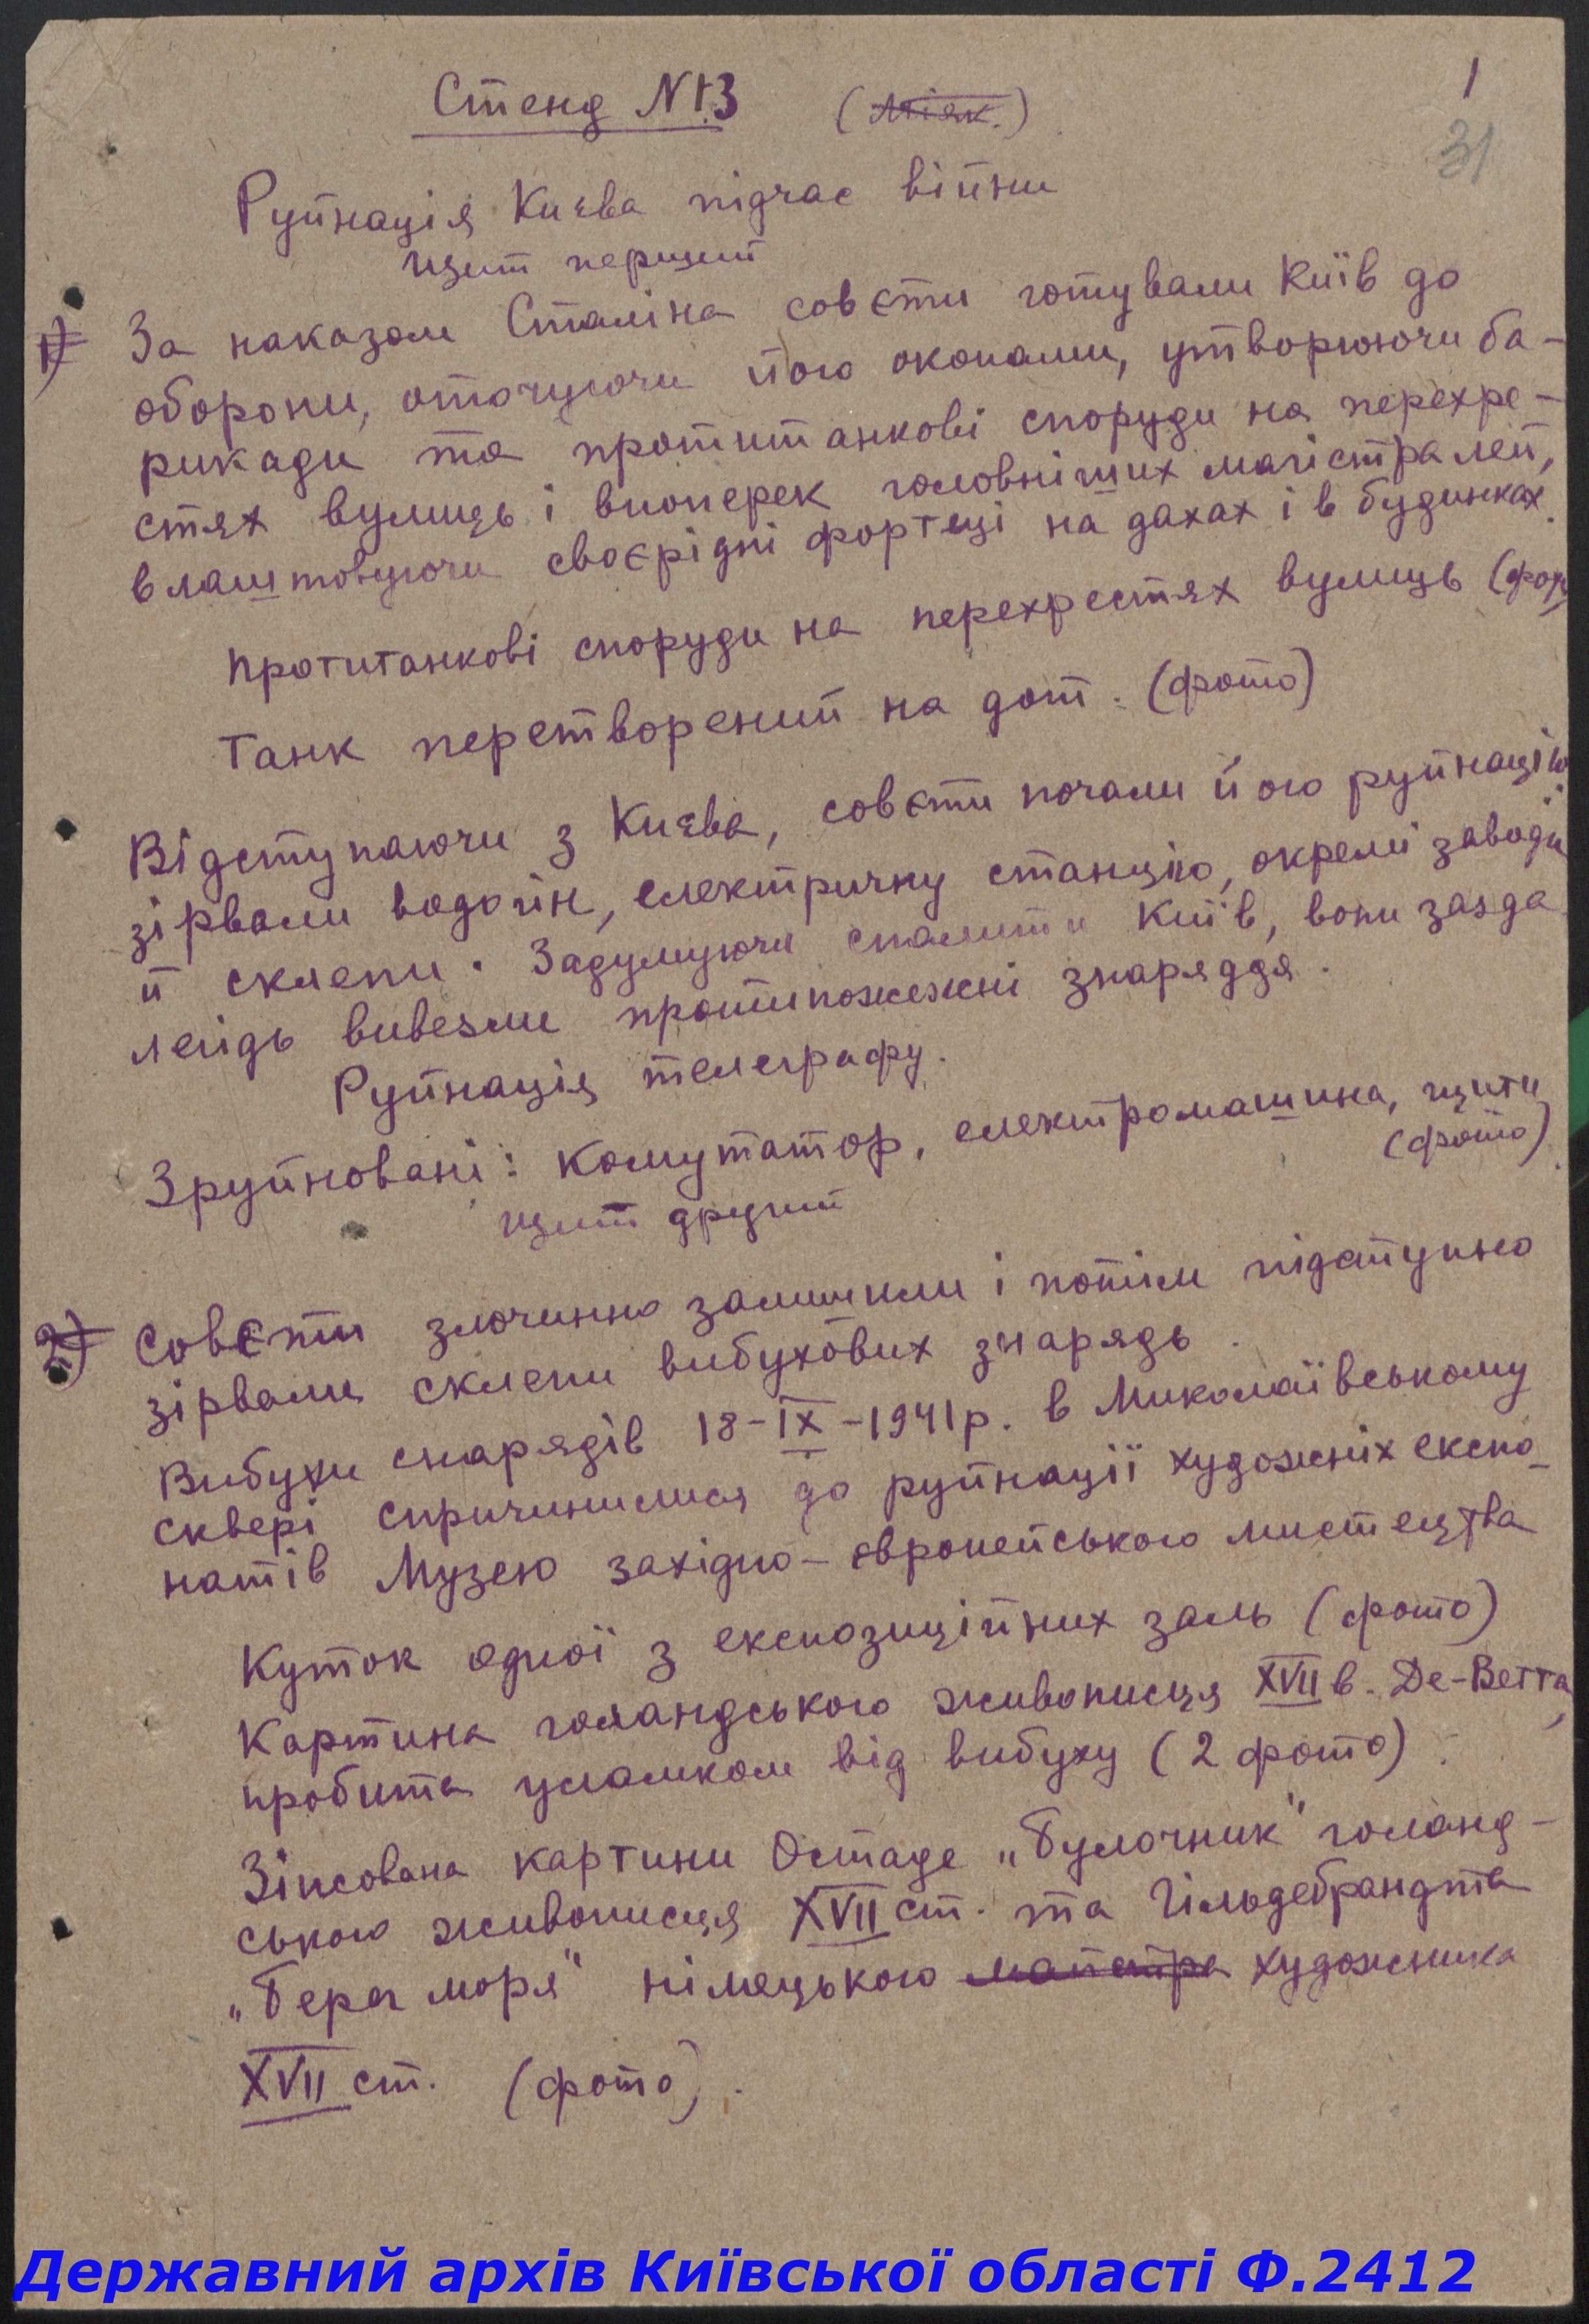 1
31
Стенд №13 (Міяк.)
Руйнація Києва підчас війни
щит перший
1) За наказом Сталіна совєти готували Київ до
оборони, оточуючи його окопами, утворюючи ба-
рикади та протитанкові споруди на перехре-
стях вулиць і впоперек головніших магістралей,
влаштовуючи своєрідні фортеці на дахах і в будинках.
Протитанкові споруди на перехрестях вулиць (фото
Танк перетворений на дот. (фото)
Відступаючи з Києва, совєти почали його руйнацію:
зірвали водогін, електричну станцію, окремі заводи
й склепи. Задумуючи спалити Київ, вони зазда
легідь вивезли протипожежні знаряддя.
Руйнація телеграфу.
Зруйновані: комутатор, електромашина, щити
(фото).
щит другий
2) Совєти злочинно залишили і потім підступно
зірвали склепи вибухових знарядь.
Вибухи снарядів 18-IX-1941р. в Миколаївському
сквері спричинилися до руйнації художніх експо-
натів Музею західно-європейського мистецтва
Куток одної з експозиційних заль (фото)
Картина голандського живописця XVII в. Де-Ветта,
пробита уламком від вибуху (2 фото).
Зіпсована картини Остаде „Булочник" голанд-
ського живописця XVII ст. та Гільдебрандта
„Берег моря" німецького майстра художника
XVII ст. (фото).
Державний архів Київської області Ф.2412